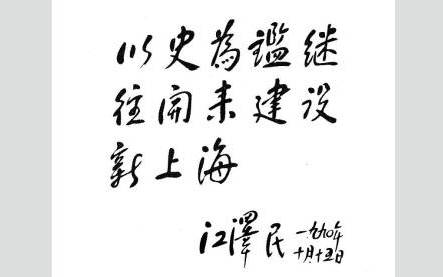 以史為鑑继
往開来建设
新上海
江澤民 一九九〇年
十月十五日